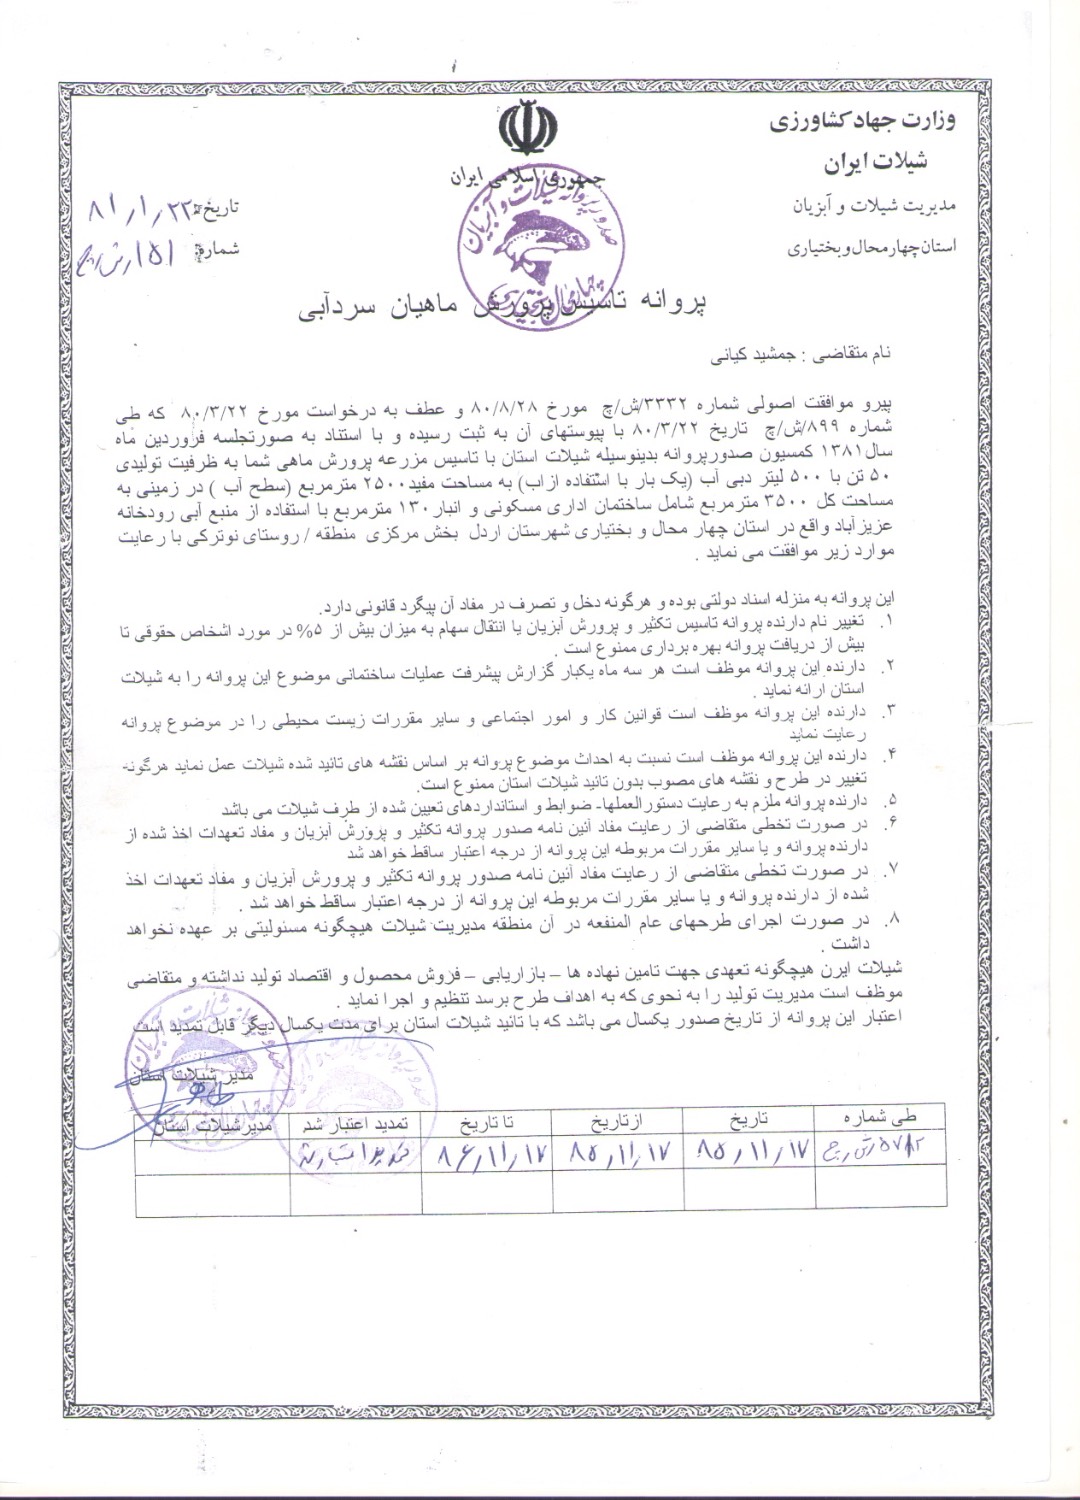 وزارت جهاد کشاورزی
شیلات ایران
مدیریت شیلات و آبزیان
استان چهار محال و بختیاری
جمهوری اسلامی ایران
تاریخ: ۸۱/۱/۲۲
شماره: ۱۵۱/ش/چ
صدور پروانه شیلات و آبزیان
چهارمحال بختیاری
پروانه تاسیس پرورش ماهیان سردآبی
نام متقاضی : جمشید کیانی
پیرو موافقت اصولی شماره ۳۳۳۲/ش/چ مورخ ۸۰/۸/۲۸ و عطف به درخواست مورخ ۸۰/۳/۲۲ که طی
شماره ۸۹۹/ش/چ تاریخ ۸۰/۳/۲۲ با پیوستهای آن به ثبت رسیده و با استناد به صورتجلسه فروردین ماه
سال ۱۳۸۱ کمسیون صدورپروانه بدینوسیله شیلات استان با تاسیس مزرعه پرورش ماهی شما به ظرفیت تولیدی
۵۰ تن با ۵۰۰ لیتر دبی آب (یک بار با استفاده ازاب) به مساحت مفید۲۵۰۰ مترمربع (سطح آب ) در زمینی به
مساحت کل ۳۵۰۰ مترمربع شامل ساختمان اداری مسکونی و انبار۱۳۰ مترمربع با استفاده از منبع آبی رودخانه
عزیزآباد واقع در استان چهار محال و بختیاری شهرستان اردل بخش مرکزی منطقه / روستای نوترکی با رعایت
موارد زیر موافقت می نماید .
این پروانه به منزله اسناد دولتی بوده و هرگونه دخل و تصرف در مفاد آن پیگرد قانونی دارد.
۱. تغییر نام دارنده پروانه تاسیس تکثیر و پرورش آبزیان یا انتقال سهام به میزان بیش از ۵% در مورد اشخاص حقوقی تا
بیش از دریافت پروانه بهره برداری ممنوع است .
۲. دارنده این پروانه موظف است هر سه ماه یکبار گزارش پیشرفت عملیات ساختمانی موضوع این پروانه را به شیلات
استان ارائه نماید .
۳. دارنده این پروانه موظف است قوانین کار و امور اجتماعی و سایر مقررات زیست محیطی را در موضوع پروانه
رعایت نماید
۴. دارنده این پروانه موظف است نسبت به احداث موضوع پروانه بر اساس نقشه های تائید شده شیلات عمل نماید هرگونه
تغییر در طرح و نقشه های مصوب بدون تائید شیلات استان ممنوع است.
۵. دارنده پروانه ملزم به رعایت دستورالعملها- ضوابط و استانداردهای تعیین شده از طرف شیلات می باشد
۶. در صورت تخطی متقاضی از رعایت مفاد آئین نامه صدور پروانه تکثیر و پرورش آبزیان و مفاد تعهدات اخذ شده از
دارنده پروانه و یا سایر مقررات مربوطه این پروانه از درجه اعتبار ساقط خواهد شد
۷. در صورت تخطی متقاضی از رعایت مفاد آئین نامه صدور پروانه تکثیر و پرورش آبزیان و مفاد تعهدات اخذ
شده از دارنده پروانه و یا سایر مقررات مربوطه این پروانه از درجه اعتبار ساقط خواهد شد .
۸. در صورت اجرای طرحهای عام المنفعه در آن منطقه مدیریت شیلات هیچگونه مسئولیتی بر عهده نخواهد
داشت .
شیلات ایرن هیچگونه تعهدی جهت تامین نهاده ها – بازاریابی – فروش محصول و اقتصاد تولید نداشته و متقاضی
موظف است مدیریت تولید را به نحوی که به اهداف طرح برسد تنظیم و اجرا نماید .
اعتبار این پروانه از تاریخ صدور یکسال می باشد که با تائید شیلات استان برای مدت یکسال دیگر قابل تمدید است
مدیر شیلات استان
طی شماره تاریخ ازتاریخ تا تاریخ تمدید اعتبار شد مدیرشیلات استان
۵۷۸۲/ش/چ ۸۵/۱۱/۱۷ ۸۵/۱۱/۱۷ ۸۶/۱۱/۱۷ تمدید اعتبار شد